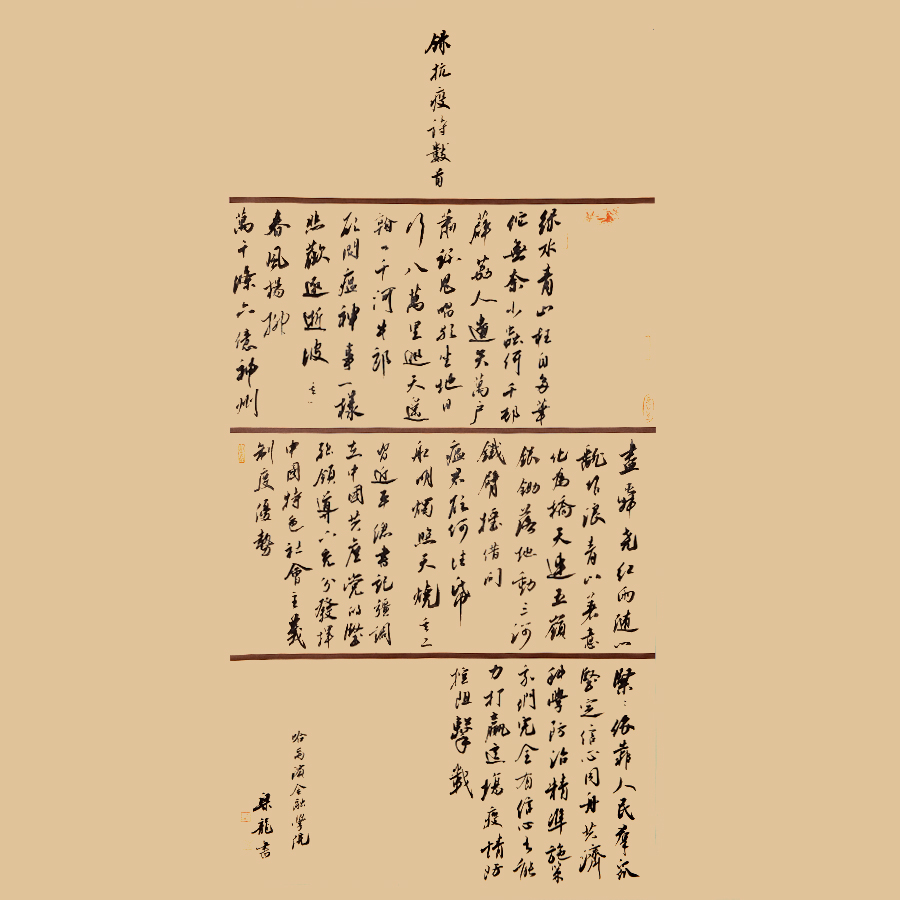 錄抗疫詩數首
綠水青山枉自多華
佗無奈小蟲何千村
薜荔人遺矢萬戶
蕭疏鬼唱歌坐地日
行八萬里巡天遙
看一千河牛郎
欲問瘟神事一樣
悲歡逐逝波 其一
春風楊柳
萬千條六億神州
盡舜堯紅雨隨心
翻作浪青山著意
化為橋天連五嶺
銀鋤落地動三河
鐵臂搖借問
瘟君欲何往紙
船明燭照天燒 其二
習近平總書記強調
在中國共產黨的堅
強領導下充分發揮
中國特色社會主義
制度優勢
緊〻依靠人民羣眾
堅定信心同舟共濟
科學防治精準施策
我們完全有信心有能
力打贏這場疫情防
控阻擊戰
哈爾濱金融學院
龍書